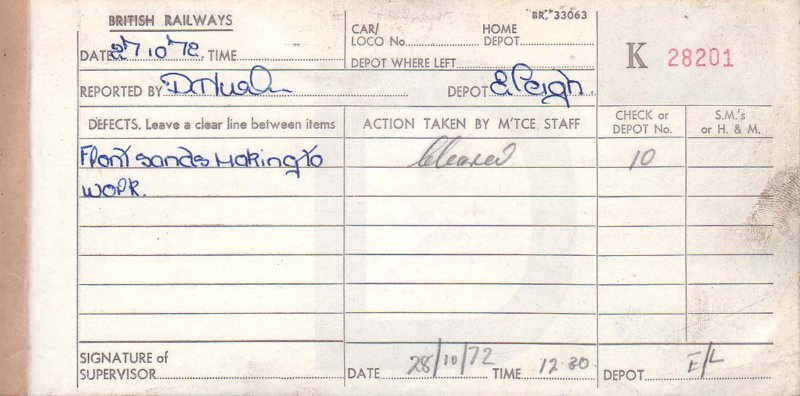 BRITISH RAILWAYS
BR. 33063
DATE 27 10 72 TIME
CAR/ LOCO No.
HOME DEPOT
K 28201
DEPOT WHERE LEFT
REPORTED BY
DEPOT E Leigh
DEFECTS. Leave a clear line between items
ACTION TAKEN BY M'TCE STAFF
CHECK or DEPOT No.
S.M.'s or H. & M.
Front sands making to
Cleaned
10
work.
SIGNATURE of SUPERVISOR
DATE 28/10/72 TIME 12-30
DEPOT E/L